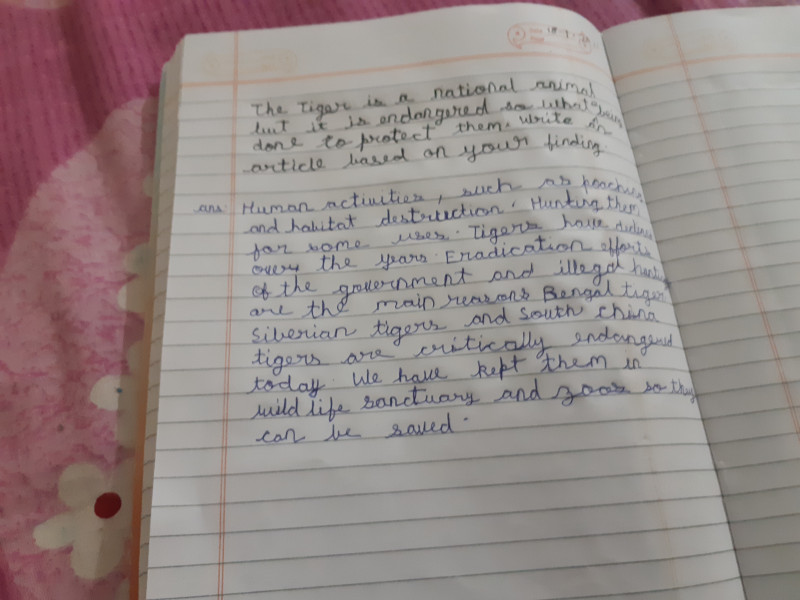 The Tiger is a national animal
but it is endangered so what
done to protect them. Write an
article based on your finding
ans: Human activities, such as poaching
and habitat destruction. Hunting them
for some uses. Tigers have
over the years. Eradication efforts
of the government and illegal hunting
are the main reasons Bengal tiger
Siberian tigers and South China
tigers are critically endangered
today. We have kept them in
wild life sanctuary and zoos so they
can be saved.